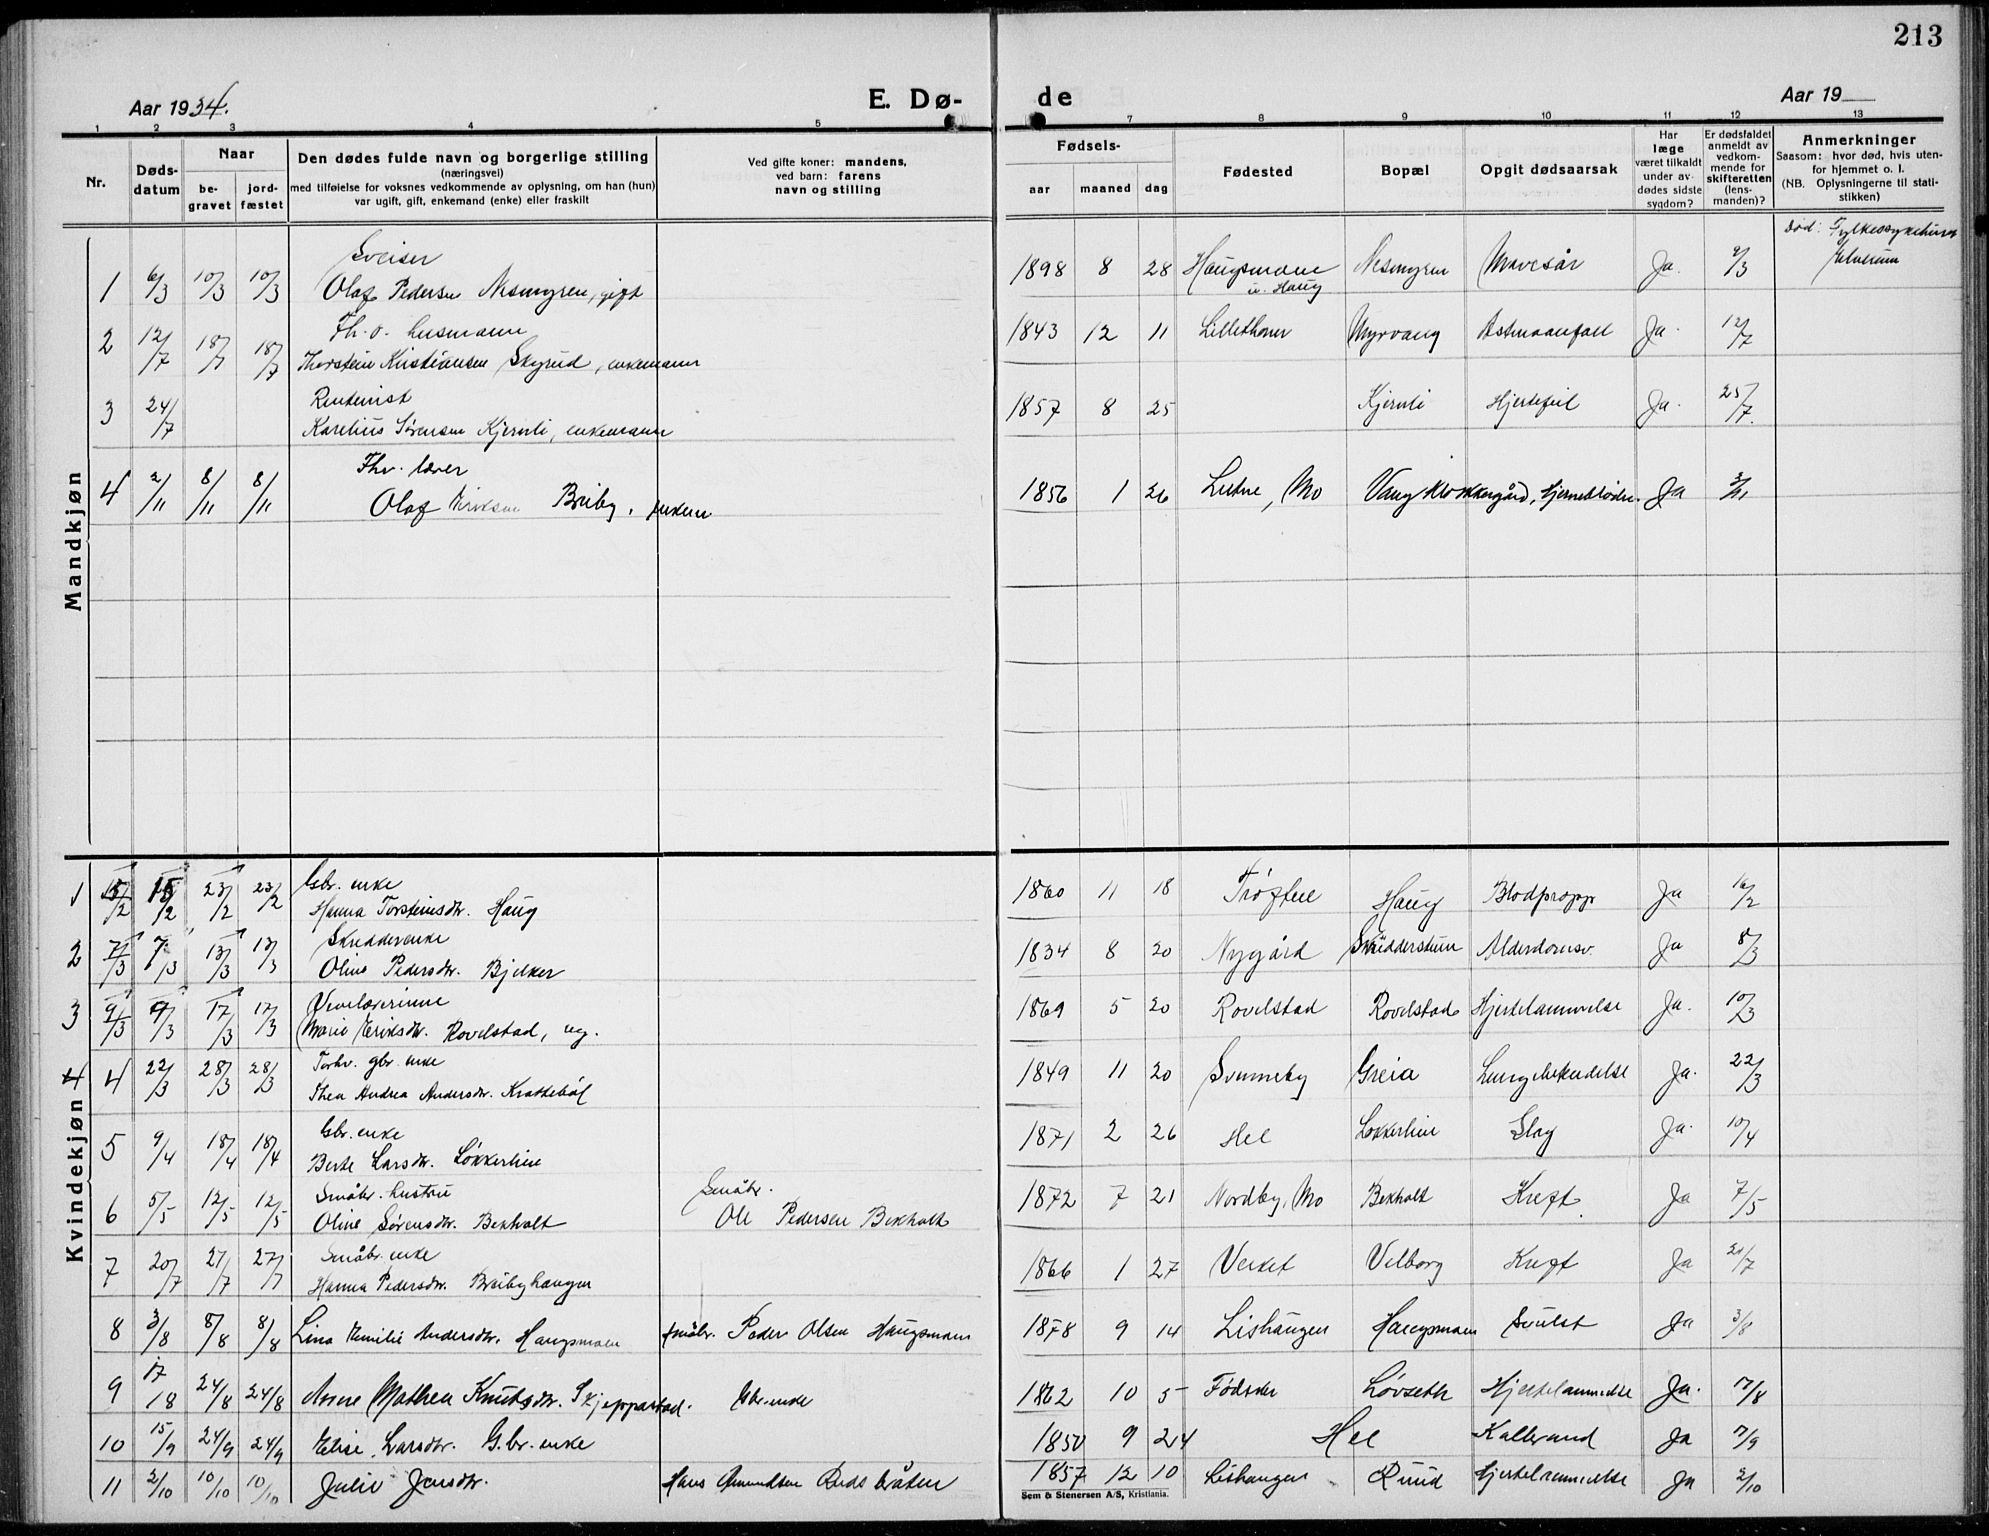 213
Aar 1934.
E. Dø-
de
Aar 19
1 2 3 4 5 7 8 9 10 11 12 13
Nr.
Døds-
datum
Naar
be-
gravet
jord-
fæstet
Den dødes fulde navn og borgerlige stilling
(næringsvei)
med tilføielse for voksnes vedkommende av oplysning, om han (hun)
var ugift, gift, enkemand (enke) eller fraskilt
Ved gifte koner: mandens,
ved barn: farens
navn og stilling
Fødsels-
aar maaned dag
Fødested
Bopæl
Opgit dødsaarsak
Har
læge
været tilkaldt
under av-
dødes sidste
sygdom?
Er dødsfaldet
anmeldt av
vedkom-
mende for
skifteretten
(lens-
manden)?
Anmerkninger
Saasom: hvor død, hvis uten-
for hjemmet o. l.
(NB. Oplysningerne til stati-
stikken)
Mandkjøn
Død: Fylkessykehuset
Elverum
Sveiser
1 6/3 10/3 10/3 Olaf Pedersen Nesmyren, gift 1898 8 28 Haugsmoen Nesmyren Mavesår Ja. 9/3
u. Haug
Fh. o. husmann
2 12/7 18/7 18/7 Thorstein Kristiansen Skyrud, enkemann 1843 12 11 Myrvang Astmaanfall Ja. 12/7
Rentenist
3 24/7 Karelius Sørensen Kjernli, enkemann 1857 8 25 Kjernli Hjertefeil Ja. 25/7.
Fhv. lærer
4 2/11 8/11 8/11 Olaf Eriksen Breiby, enkem 1856 1 26 Mo Vang klokkergård, Hjerneblødn. Ja 3/11
Kvindekjøn
Gbr. enke
1 15/2 15/2 23/2 23/2 Hanna Torsteinsdtr. Haug 1860 11 18 Haug Blodpropp Ja 16/2
Skredderenke
2 7/3 7/3 13/3 13/3 Oline Pedersdtr. Bjelker 1834 8 20 Nygård Skredderstuen Alderdomsv. Ja 8/3
Vevelærerinne
3 9/3 9/3 17/3 17/3 Marie Eriksdtr. Rovelstad, ug. 1869 5 20 Rovelstad Rovelstad Hjertelammelse Ja. 10/3
Forhv. gbr. enke
4 4 22/3 28/3 28/3 Thea Andrea Andersdtr. Krattebøl 1849 11 20 Svenneby Greia Lungebetendelse Ja. 22/3
Gbr. enke
5 9/4 18/4 18/4 Berte Larsdtr. Løkkerlien 1871 2 26 Hel Løkkerlien Slag Ja. 10/4
Småbr. hustru Småbr.
6 5/5 12/5 12/5 Oline Sørensdtr. Bekholt Ole Pedersen Bekholt 1872 7 21 Nordby, Mo Bekholt Kreft Ja 7/5
Småbr. enke
7 20/7 27/7 27/7 Hanna Pedersdtr. Breibyhaugen 1866 1 27 Verket Velborg Kreft Ja 21/7
8 3/8 8/8 8/8 Lina Emilie Andersdtr. Haugsmoen småbr. Peder Olsen Haugsmoen 1878 9 14 Lishaugen Haugsmoen Svulst Ja 3/8
9 17/8 24/8 24/8 Anne Mathea Knutsdtr. Skjeppastad. Gbr. enke 1862 10 5 Løvseth Hjertelammelse Ja. 17/8
10 15/9 24/9 24/9 Elise Larsdtr. G.br. enke 1850 9 24 Hel Kallbrand Ja 17/9
11 2/10 10/10 10/10 Julie Jensdtr. Hans Amundsen Rudsbråten 1857 12 10 Lishaugen Ruud Hjertelammelse Ja 2/10
Sem & Stenersen A/S, Kristiania.